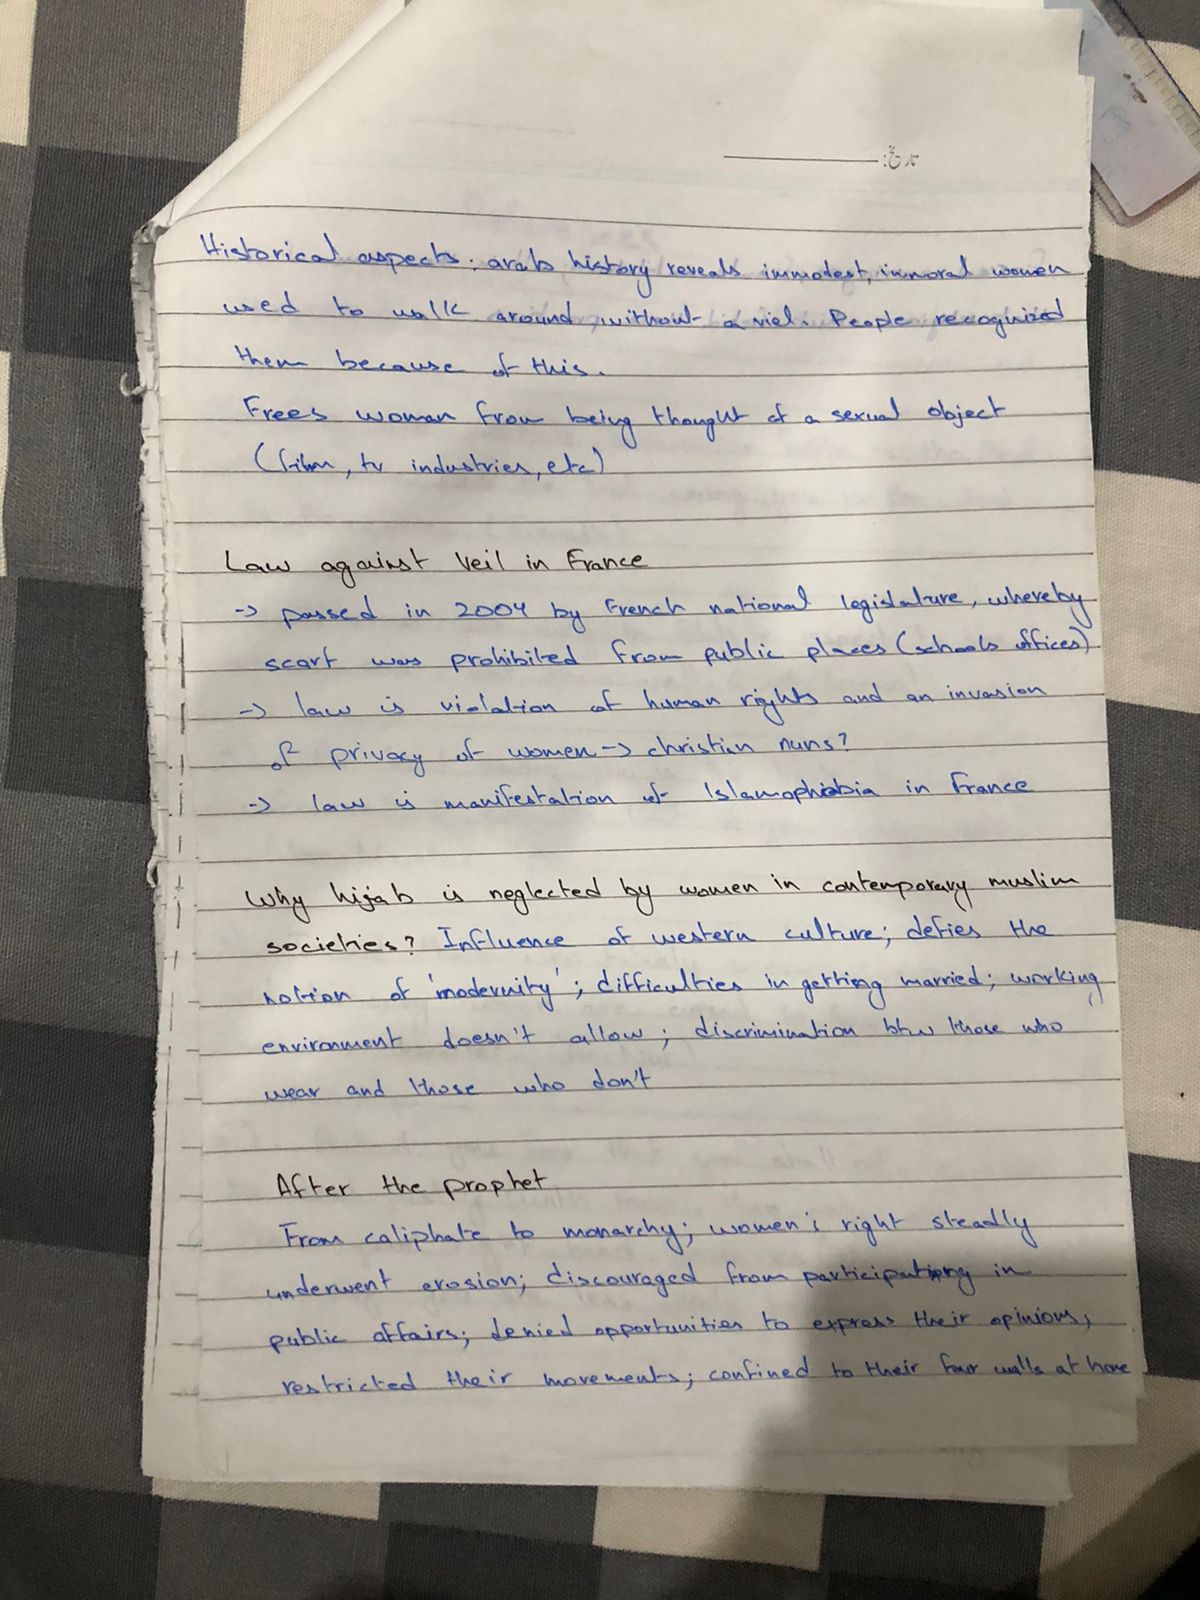 تاریخ:
Historical aspects: arab history reveals immodest, immoral women
used to walk around without a viel. People recognized
them because of this.
Frees woman from being thought of a sexual object
(film, tv industries, etc)
Law against Veil in France
-> passed in 2004 by French national legislature, whereby
scarf was prohibited from public places (schools offices)
-> law is violation of human rights and an invasion
of privacy of women -> christian nuns?
-> law is manifestation of Islamophobia in France
Why hijab is neglected by women in contemporary muslim
societies? Influence of western culture; defies the
notion of 'modernity'; difficulties in getting married; working
environment doesn't allow; discrimination btw those who
wear and those who don't
After the prophet
From caliphate to monarchy; women's right steadly
underwent erosion; discouraged from participating in
public affairs; denied opportunities to express their opinions;
restricted their movements; confined to their four walls at home